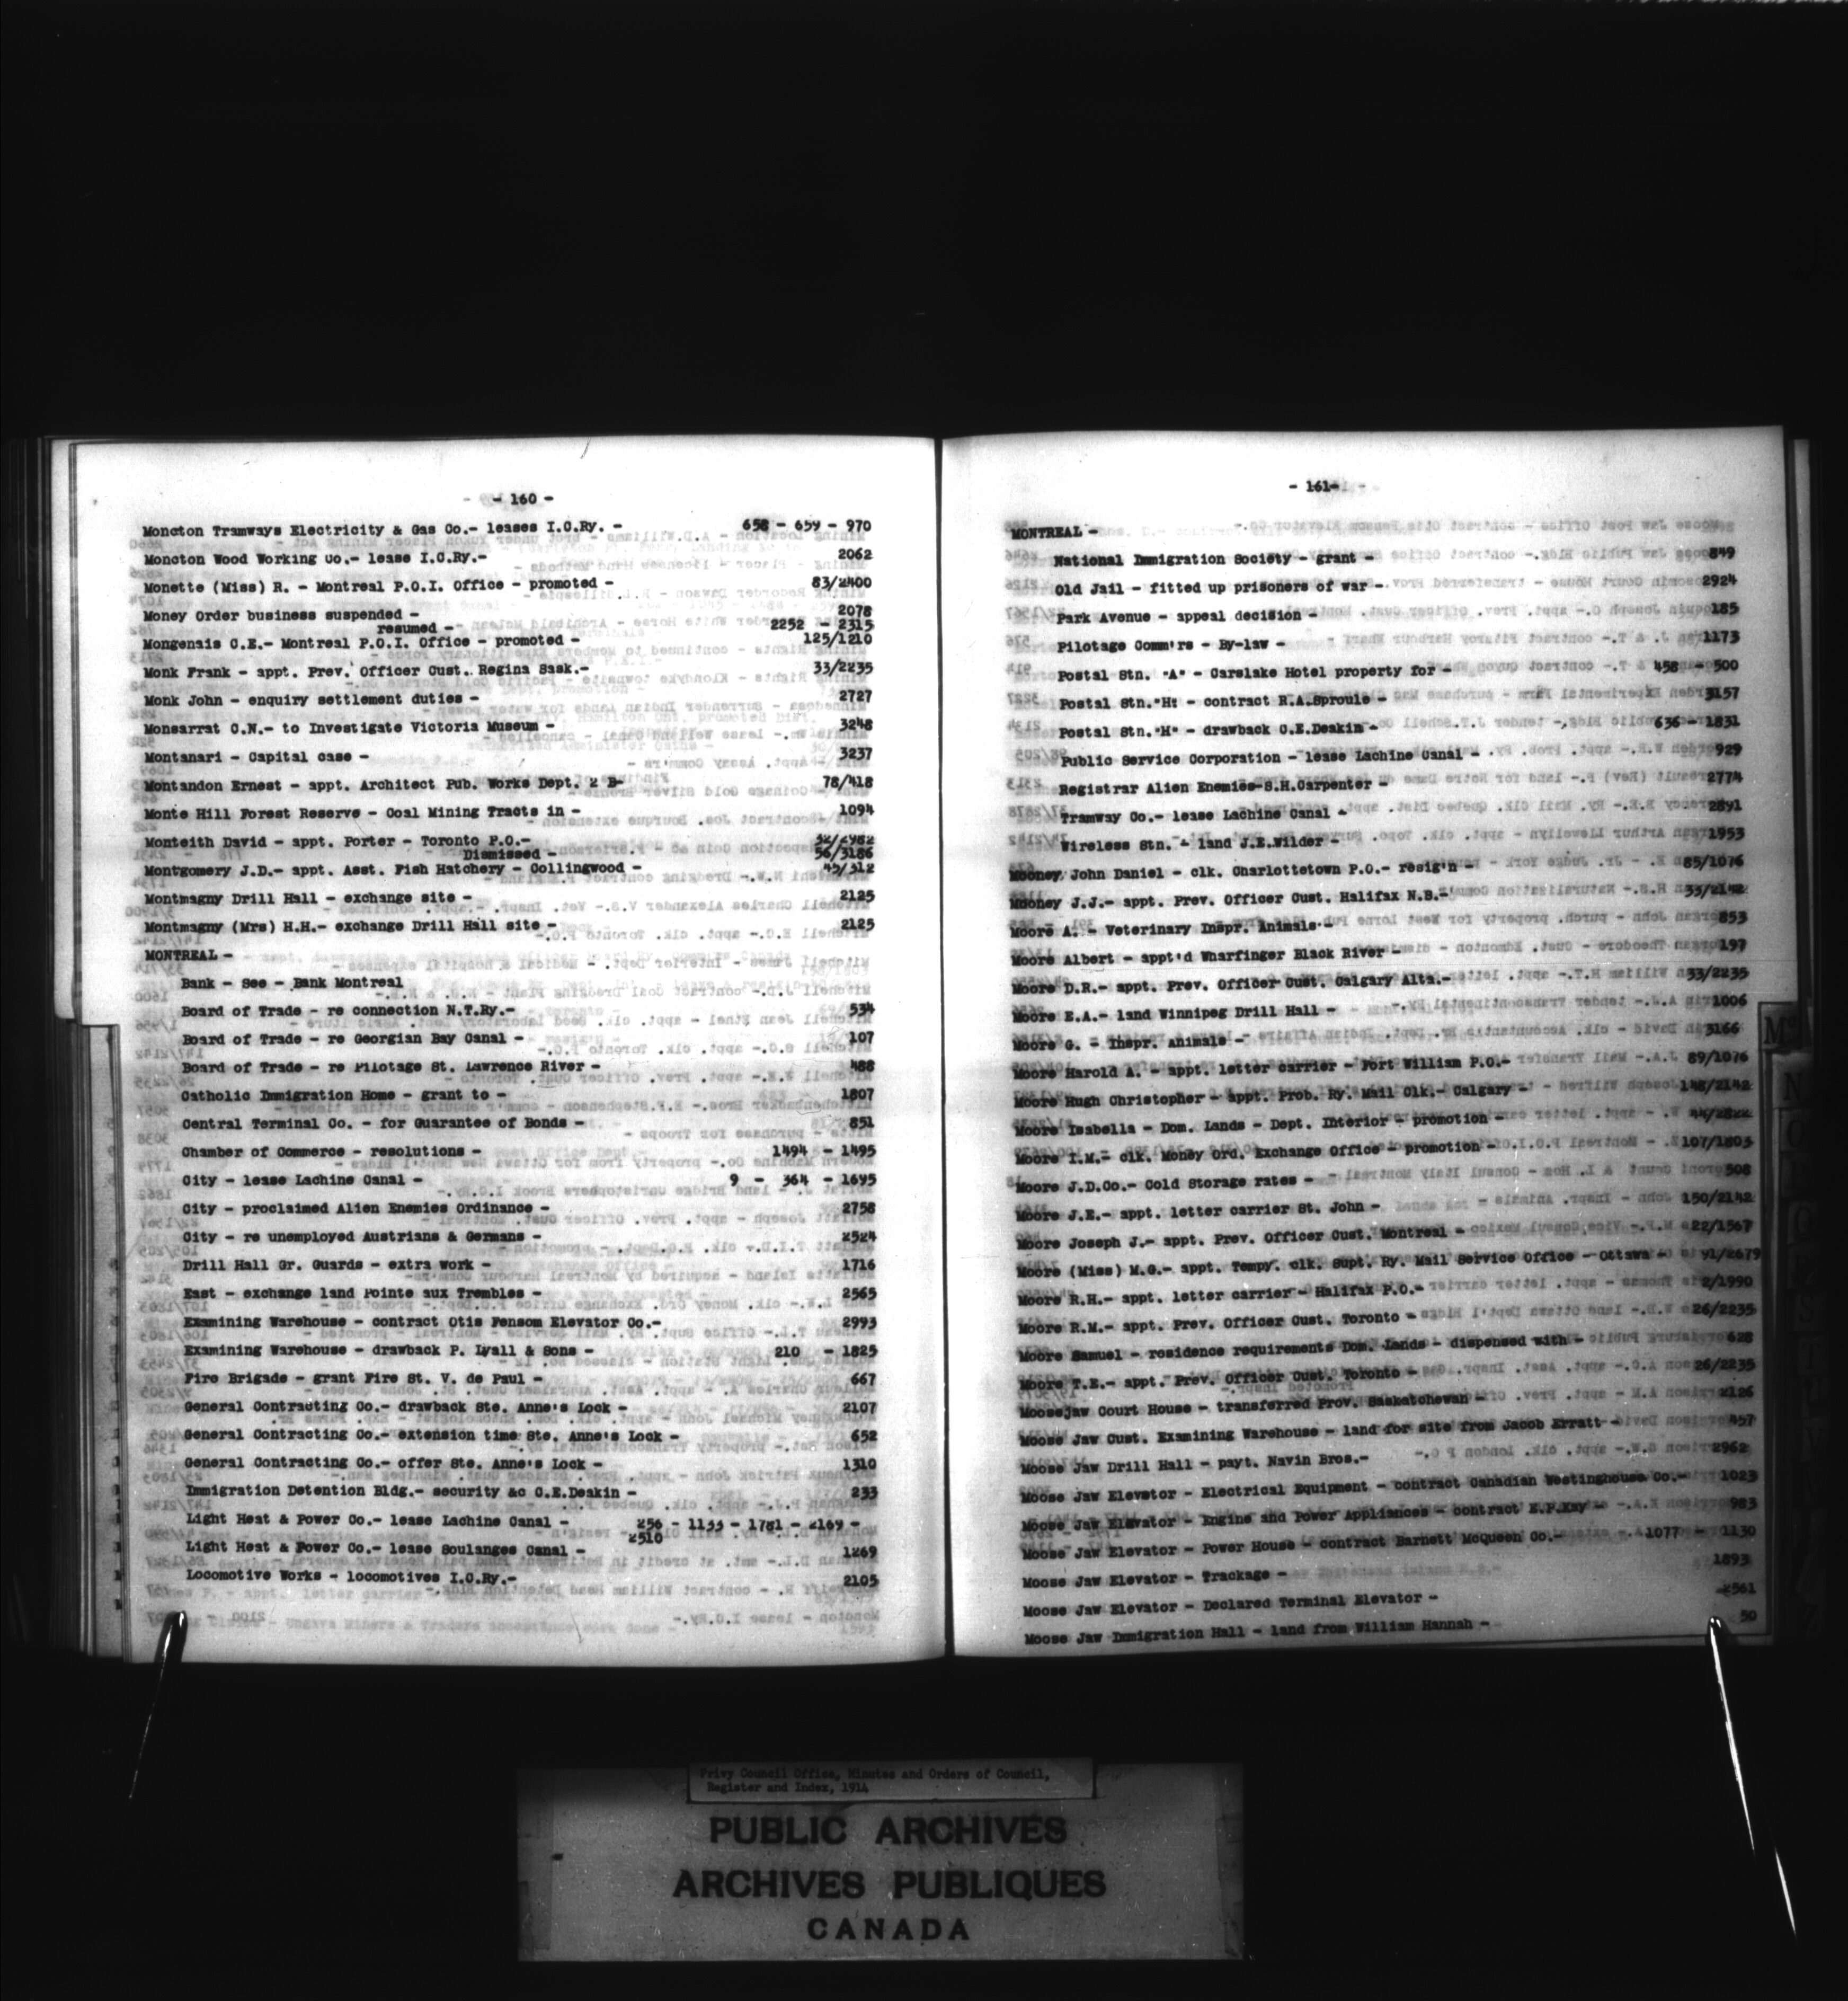 - 160 -
Moncton Tramways Electricity & Gas Co.- leases I.C.Ry. - 658 - 659 - 970
Moncton Wood Working Co.- lease I.C.Ry.- 2062
Monette (Miss) R. - Montreal P.O.I. Office - promoted - 83/2400
Money Order business suspended - 2078
resumed - 2252 - 2315
Mongenais C.E.- Montreal P.O.I. Office - promoted - 125/1210
Monk Frank - appt. Prev. Officer Cust. Regina Sask.- 33/2235
Monk John - enquiry settlement duties - 2727
Monsarrat C.N.- to Investigate Victoria Museum - 3248
Montanari - Capital case - 3237
Montandon Ernest - appt. Architect Pub. Works Dept. 2 B- 78/418
Monte Hill Forest Reserve - Coal Mining Tracts in - 1094
Monteith David - appt. Porter - Toronto P.O.- 52/2982
Dismissed - 56/3186
Montgomery J.D.- appt. Asst. Fish Hatchery - Collingwood - 45/312
Montmagny Drill Hall - exchange site - 2125
Montmagny (Mrs) H.H.- exchange Drill Hall site - 2125
MONTREAL -
Bank - See - Bank Montreal
Board of Trade - re connection N.T.Ry.- 534
Board of Trade - re Georgian Bay Canal - 107
Board of Trade - re Pilotage St. Lawrence River - 488
Catholic Immigration Home - grant to - 1807
Central Terminal Co. - for Guarantee of Bonds - 851
Chamber of Commerce - resolutions - 1494 - 1495
City - lease Lachine Canal - 9 - 364 - 1695
City - proclaimed Alien Enemies Ordinance - 2758
City - re unemployed Austrians & Germans - 2524
Drill Hall Gr. Guards - extra work - 1716
East - exchange land Pointe aux Trembles - 2565
Examining Warehouse - contract Otis Fensom Elevator Co.- 2993
Examining Warehouse - drawback P. Lyall & Sons - 210 - 1825
Fire Brigade - grant Fire St. V. de Paul - 667
General Contracting Co.- drawback Ste. Anne's Lock - 2107
General Contracting Co.- extension time Ste. Anne's Lock - 652
General Contracting Co.- offer Ste. Anne's Lock - 1310
Immigration Detention Bldg.- security &c C.E.Deakin - 233
Light Heat & Power Co.- lease Lachine Canal - 256 - 1133 - 1781 - 2169 -
2510
Light Heat & Power Co.- lease Soulanges Canal - 1269
Locomotive Works - locomotives I.C.Ry.- 2105
- 161-
MONTREAL -
National Immigration Society - grant - 849
Old Jail - fitted up prisoners of war - 2924
Park Avenue - appeal decision - 185
Pilotage Comm'rs - By-law - 1173
Postal Stn. "A" - Carslake Hotel property for - 458 - 500
Postal Stn."H: - contract R.A.Sproule - 3157
Postal Stn."H" - drawback C.E.Deakin - 636 - 1831
Public Service Corporation - lease Lachine Canal - 929
Registrar Alien Enemies-S.H.Carpenter - 2774
Tramway Co.- lease Lachine Canal - 2891
Wireless Stn. - land J.E.Wilder - 1953
Mooney John Daniel - clk. Charlottetown P.O.- resig'n - 85/1076
Mooney J.J.- appt. Prev. Officer Cust. Halifax N.S.- 33/2142
Moore A. - Veterinary Inspr. Animals - 853
Moore Albert - appt'd Wharfinger Black River - 197
Moore D.R.- appt. Prev. Officer Cust. Calgary Alta.- 33/2235
Moore E.A.- land Winnipeg Drill Hall - 1006
Moore G. - Inspr. Animals - 3166
Moore Harold A. - appt. letter carrier - Fort William P.O.- 89/1076
Moore Hugh Christopher - appt. Prob. Ry. Mail Clk.- Calgary - 148/2142
Moore Isabella - Dom. Lands - Dept. Interior - promotion - 44/2822
Moore I.M.- clk. Money Ord. Exchange Office - promotion - 107/1803
Moore J.D.Co.- Cold Storage rates - 508
Moore J.E.- appt. letter carrier St. John - 150/2142
Moore Joseph J.- appt. Prev. Officer Cust. Montreal - 22/1567
Moore (Miss) M.G.- appt. Tempy. clk. Supt. Ry. Mail Service Office - Ottawa - 91/2679
Moore R.H.- appt. letter carrier - Halifax P.O.- 2/1990
Moore R.M.- appt. Prev. Officer Cust. Toronto - 26/2235
Moore Samuel - residence requirements Dom. Lands - dispensed with - 628
Moore T.E.- appt. Prev. Officer Cust. Toronto - 26/2235
Moosejaw Court House - transferred Prov. Saskatchewan - 2126
Moose Jaw Cust. Examining Warehouse - land for site from Jacob Erratt - 457
Moose Jaw Drill Hall - payt. Navin Bros.- 2962
Moose Jaw Elevator - Electrical Equipment - contract Canadian Westinghouse Co.- 1023
Moose Jaw Elevator - Engine and Power Appliances - contract E.P.Kay - 983
Moose Jaw Elevator - Power House - contract Barnett McQueen Co.- 1077 - 1130
Moose Jaw Elevator - Trackage - 1893
Moose Jaw Elevator - Declared Terminal Elevator - 2561
Moose Jaw Immigration Hall - land from William Hannah - 50
Privy Council Office, Minutes and Orders of Council,
Register and Index, 1914
PUBLIC ARCHIVES
ARCHIVES PUBLIQUES
CANADA